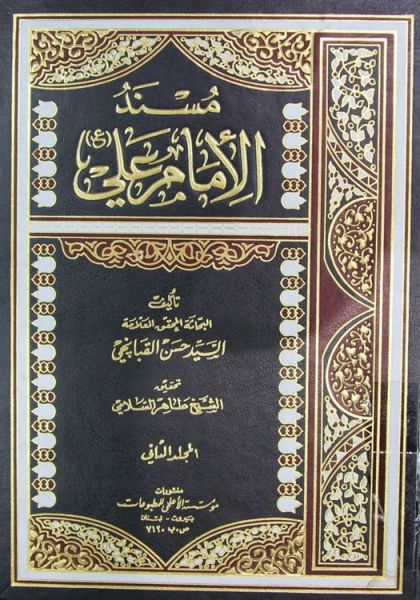 مُسْنَدُ
الإمام علي (ع)
تأليف
البحاثة المحقق العلامة
السيد حسن القبانجي
تحقيق
الشيخ طاهر السلامي
المجلد الثاني
منشورات
مؤسسة الأعلمي للمطبوعات
بيروت - لبنان
ص.ب ٧١٢٠